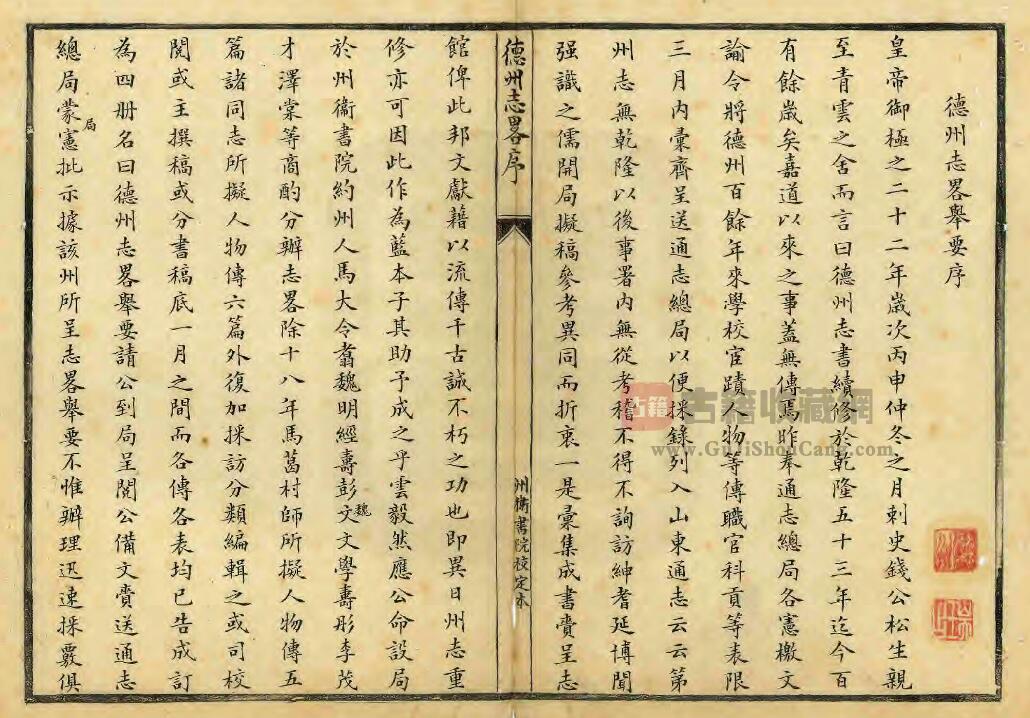 德州志畧舉要序
皇帝御極之二十二年歲次丙申仲冬之月刺史錢公松生親
至青雲之舍而言曰德州志書續修於乾隆五十三年迄今百
有餘歲矣嘉道以來之事蓋無傳焉昨奉通志總局各憲檄文
諭令將德州百餘年來學校宦蹟人物等傳職官科貢等表限
三月內彙齊呈送通志總局以便採錄列入山東通志云云第
州志無乾隆以後事署內無從考稽不得不詢訪紳耆延博聞
强識之儒開局擬稿參考異同而折衷一是彙集成書賫呈志
德州志畧序
州衛書院校定本
館俾此邦文獻藉以流傳千古誠不朽之功也即異日州志重
修亦可因此作為藍本子其助予成之乎雲毅然應公命設局
於州衛書院約州人馬大令翥魏明經壽彭文魏文學壽彤李茂
才澤棠等商酌分辦志畧除十八年馬葛村師所擬人物傳五
篇諸同志所擬人物傳六篇外復加採訪分類編輯之或司校
閱或主撰稿或分書稿底一月之間而各傳各表均已告成訂
為四册名曰德州志畧舉要請公到局呈閱公備文賫送通志
總局蒙局憲批示據該州所呈志畧舉要不惟辦理迅速採覈俱
古籍
古籍收藏網
www.GuJiShouCang.com